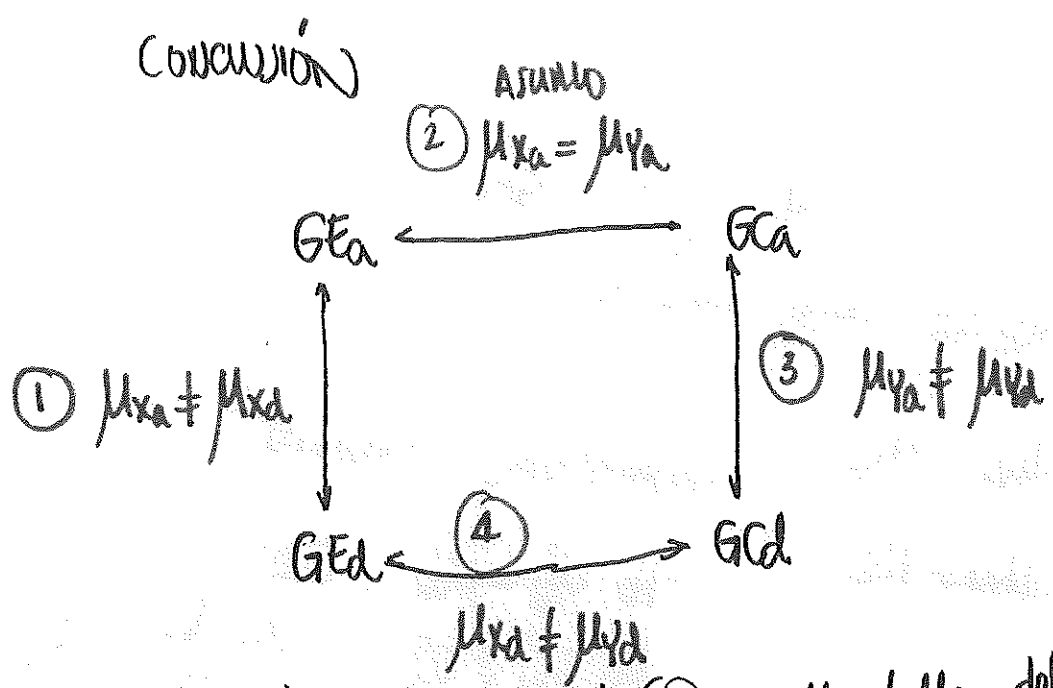 CONCLUSIÓN
ASUMO
② μXa = μYa
GEa GCa
① μXa ≠ μXd ③ μYa ≠ μYd
④
GEd GCd
μXd ≠ μYd